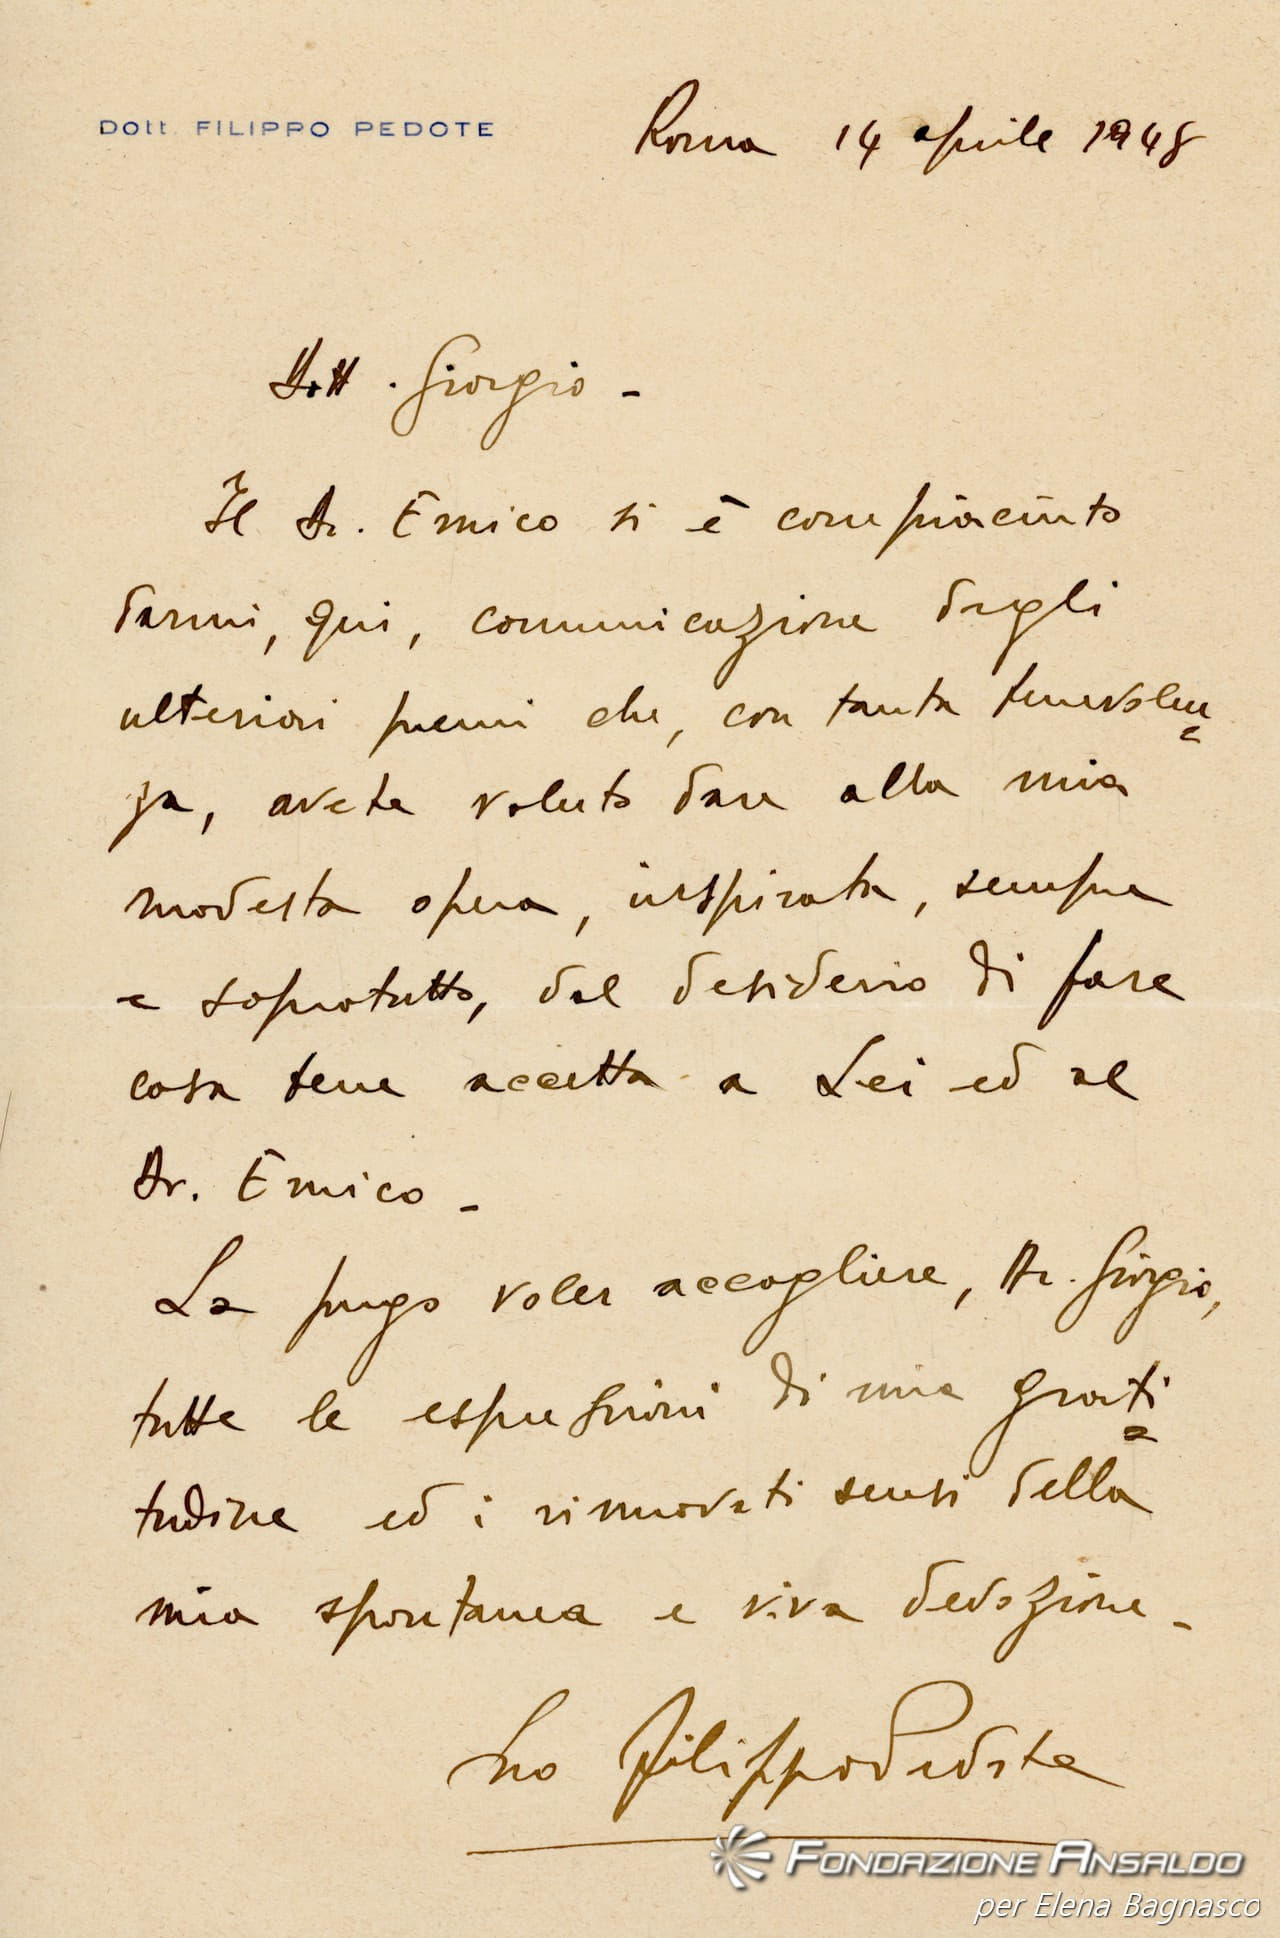 Dott. FILIPPO PEDOTE
Roma 14 aprile 1948
Dott. Giorgio -
Il Dr. Enrico si è compiaciuto
darmi, qui, comunicazione degli
ulteriori premi che, con tanta benevolen=
za, avete voluto dare alla mia
modesta opera, inspirata, sempre
e sopratutto, dal desiderio di fare
cosa bene accetta a Lei ed al
Dr. Enrico -
La prego voler accogliere, Dr. Giorgio,
tutte le espressioni di mia grati=
tudine ed i rinnovati sensi della
mia spontanea e viva devozione -
Suo Filippo Pedote
FONDAZIONE ANSALDO
per Elena Bagnasco